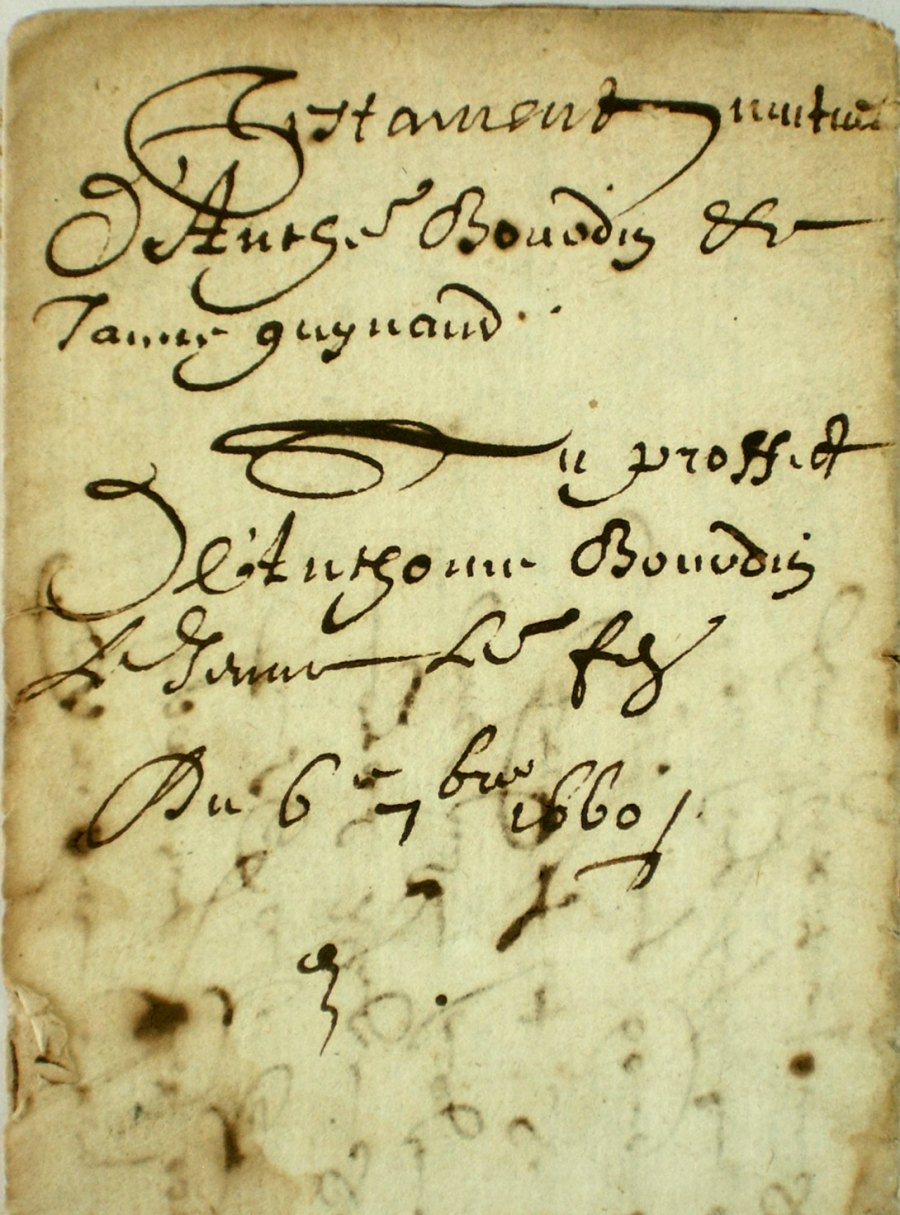 Testament mutuel
d'Anthe Bourdin &
Janne guynaud
Au proffict
de Anthonie Bourdin
Le Jeune Le filz
Du 6e 7bre 1660